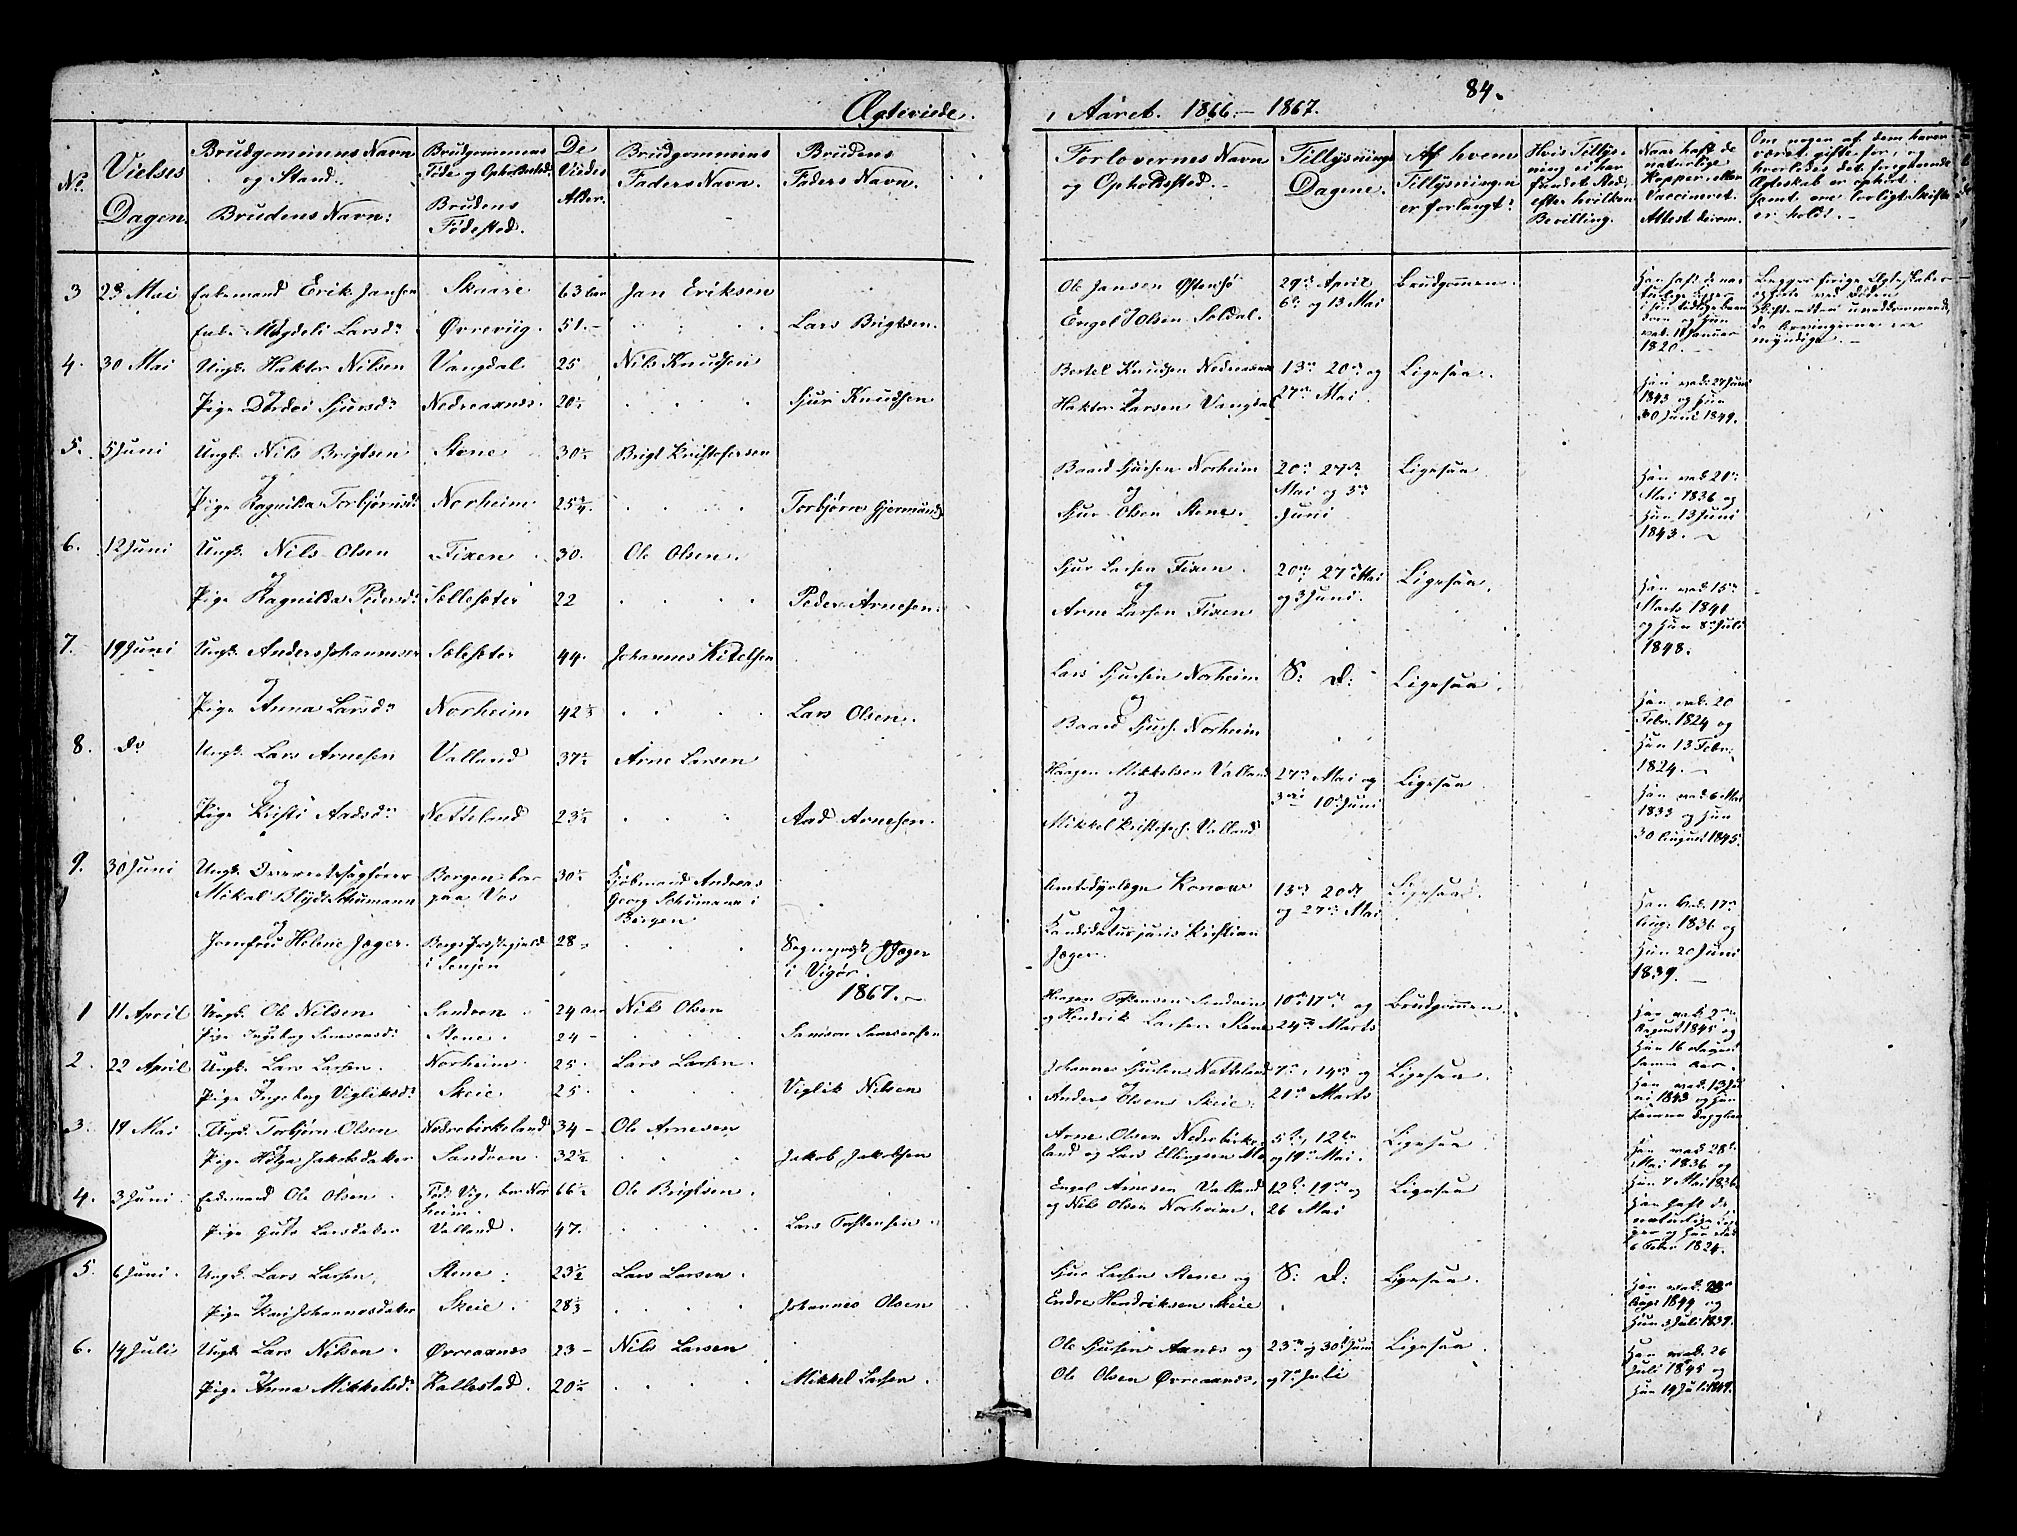 84.
Ægteviede i Aaret 1866 – 1867.
No. | Vielses Dagen. | Brudgommens Navn og Stand. Brudens Navn: | Brudgommens Føde og Opholdssted. Brudens Fødested. | De Viedes Alder. | Brudgommens Faders Navn. | Brudens Faders Navn. | Forlovernes Navn og Opholdssted. | Tillysnings Dagene. | Af hvem Tillysningen er forlangt? | Hvis Tillysning ei har fundet Sted, efter hvilken Bevilling. | Naar haft de naturlige Kopper, eller Vaccineret. Attest derom. | Om nogen af dem haver været gifte før, og hvorledes det foregaaende Ægteskab er ophørt. Samt om lovligt Skifte er holdt.
3 | 23 Mai | Enkemand Erik Jansen | Skaare | 63 Aar | Jan Eriksen | Ole Jansen | 29de April | Brudgommen.
Enke Magdeli Larsdr | Øvreviig. | 51.– | Lars Brigtsen. | Engel Olsen Soldal. | 6te og 13 Mai | 1820.
4. | 30 Mai | Ungk. Haktor Nilsen | Vangdal | 25 | Nils Knudsen | Bertel Knudsen Nedreaanes | 13de 20de og | Ligesaa.
Pige Dordei Sjursdr | Nedreaanes. | 20½ | Sjur Knudsen | og Haktor Larsen Vangdal | 27de Mai | Han vac. 27 Juni 1843 og Hun 30 Juni 1849.
5. | 5 Juni | Ungk. Nils Brigtsen | Stene | 30½ | Brigt Kristofersen | Baard Sjursen Norheim | 20de 27de | Ligesaa
og Pige Ragnilda Torbjørnsdr | Norheim | 25¾. | Torbjørn Gjermunds | og Sjur Olsen Stene. | Mai og 3de Juni | Han vac. 21de Mai 1836 og Hun 13 Juni 1843.
6. | 12 Juni | Ungk. Nils Olsen | Fixen | 30. | Ole Olsen. | Sjur Larsen Fixen | 20de, 27de Mai | Ligesaa.
og Pige Ragnilda Pedersdr | Sællesæter | 22 | Peder Arnesen. | og Arne Larsen Fixen | og 3 Juni. | Han vac. 15de Marts 1840 og Hun 8de Juli 1848.
7. | 19 Juni | Ungk. Anders Johannesen | Sælesæter | 44. | Johannes Kitelsen | Lars Sjursen Norheim | S: D: | Ligesaa.
og Pige Anna Larsdr | Norheim | 42⅓ | Lars Olsen. | og Baard Sjurs. Norheim | Han vac. 20 Febr. 1824 og Hun 13 Febr. 1824.
8. | Do | Ungk. Lars Arnesen | Valland | 37½ | Arne Larsen | Haagen Mikkelsen Valland | 27de Mai og | Ligesaa
og Pige Kristi Aadsdr | Netteland | 23½ | Aad Arnesen. | og Mikkel Kristofs. Valland | 3de 10de Juni | Han vac. 6 Mai 1833 og Hun 30 August 1845.
9. | 30 Juni | Ungk. Overretssagfører Mikal Blyd Schumann | Bergen boe paa Vos | 30½ | Kjøbmand Andreas Georg Schumann i Bergen | Amtsdyrlæge Konow | 13de 20de og 27de Mai | Ligesaa.
og Jomfru Helene Jæger. | Bergs Præstegjeld i Senjen | 28– | Sognepræst Jæger i Vigør. | og Kandidatus juris Kristian Jæger. | Han Vac. 17de Aug. 1836 og Hun 20 Juni 1839.
1867.
1 | 11 April | Ungk. Ole Nilsen | Sandven | 24 Aar | Nils Olsen | Haagen Torstensen Sandven | 10de 17de og | Brudgommen.
Pige Ingeborg Samsonsdr | Stene. | 24 – | Samson Samsonsen | og Hendrik Larsen Stene | 24de Marts | August 1845 og Hun 16 August samme Aar.
2. | 22 April | Ungk. Lars Larsen. | Norheim. | 25. | Lars Larsen. | Johannes Sjursen Netteland | 7de, 14de og | Ligesaa.
og Pige Ingeborg Vigliksdr | Skeie | 25. | Viglik Nilsen | og Anders Olsen Skeie. | 21de Marts
3. | 19 Mai | Ungk. Torbjørn Olsen | Nedrebirkeland | 34 – | Ole Arnesen | Arne Olsen Nedrebirke- | 5te, 12te | Ligesaa
Pige Helga Jakobsdater | Sandven. | 32½ | Jakob Jakobsen | land og Lars Ellingsen | og 19de Mai. | Han vac. 28de Mai 1836 og Hun 7 Mai 1836
4. | 3 Juni | Enkemand Ole Olsen | Fød. Vig. boe Norheim. | 66½ | Ole Brigtsen. | Engel Arnesen Valland | 12te 19de og | Ligesaa
Pige Guro Larsdater | Valland. | 47. | Lars Torstensen. | og Nils Olsen Norheim. | 26 Mai | Han haft de naturlige Kopper og Hun vac. 6 Febr 1824.
5. | 6 Juni. | Ungk. Lars Larsen | Stene | 23½ | Lars Larsen. | Sjur Larsen Stene og | S: D: | Ligesaa.
og Pige Kari Johannesdater | Skeie. | 28⅓ | Johannes Olsen | Endre Hendriksen Skeie | Aug. 1844 og Hun 3 Juli 1839.
6. | 14 Juli | Ungk. Lars Nilsen. | Øvreaanes | 23 – | Nils Larsen | Ole Sjursen Aanes og | 23de og 30de Juni | Ligesaa.
og Pige Anna Mikkelsdr | Kallestad. | 20½ | Mikkel Larsen. | Ole Olsen Øvreaanes. | og 7de Juli | Han vac. 26 Juli 1845 og Hun 14 Juli 1849.